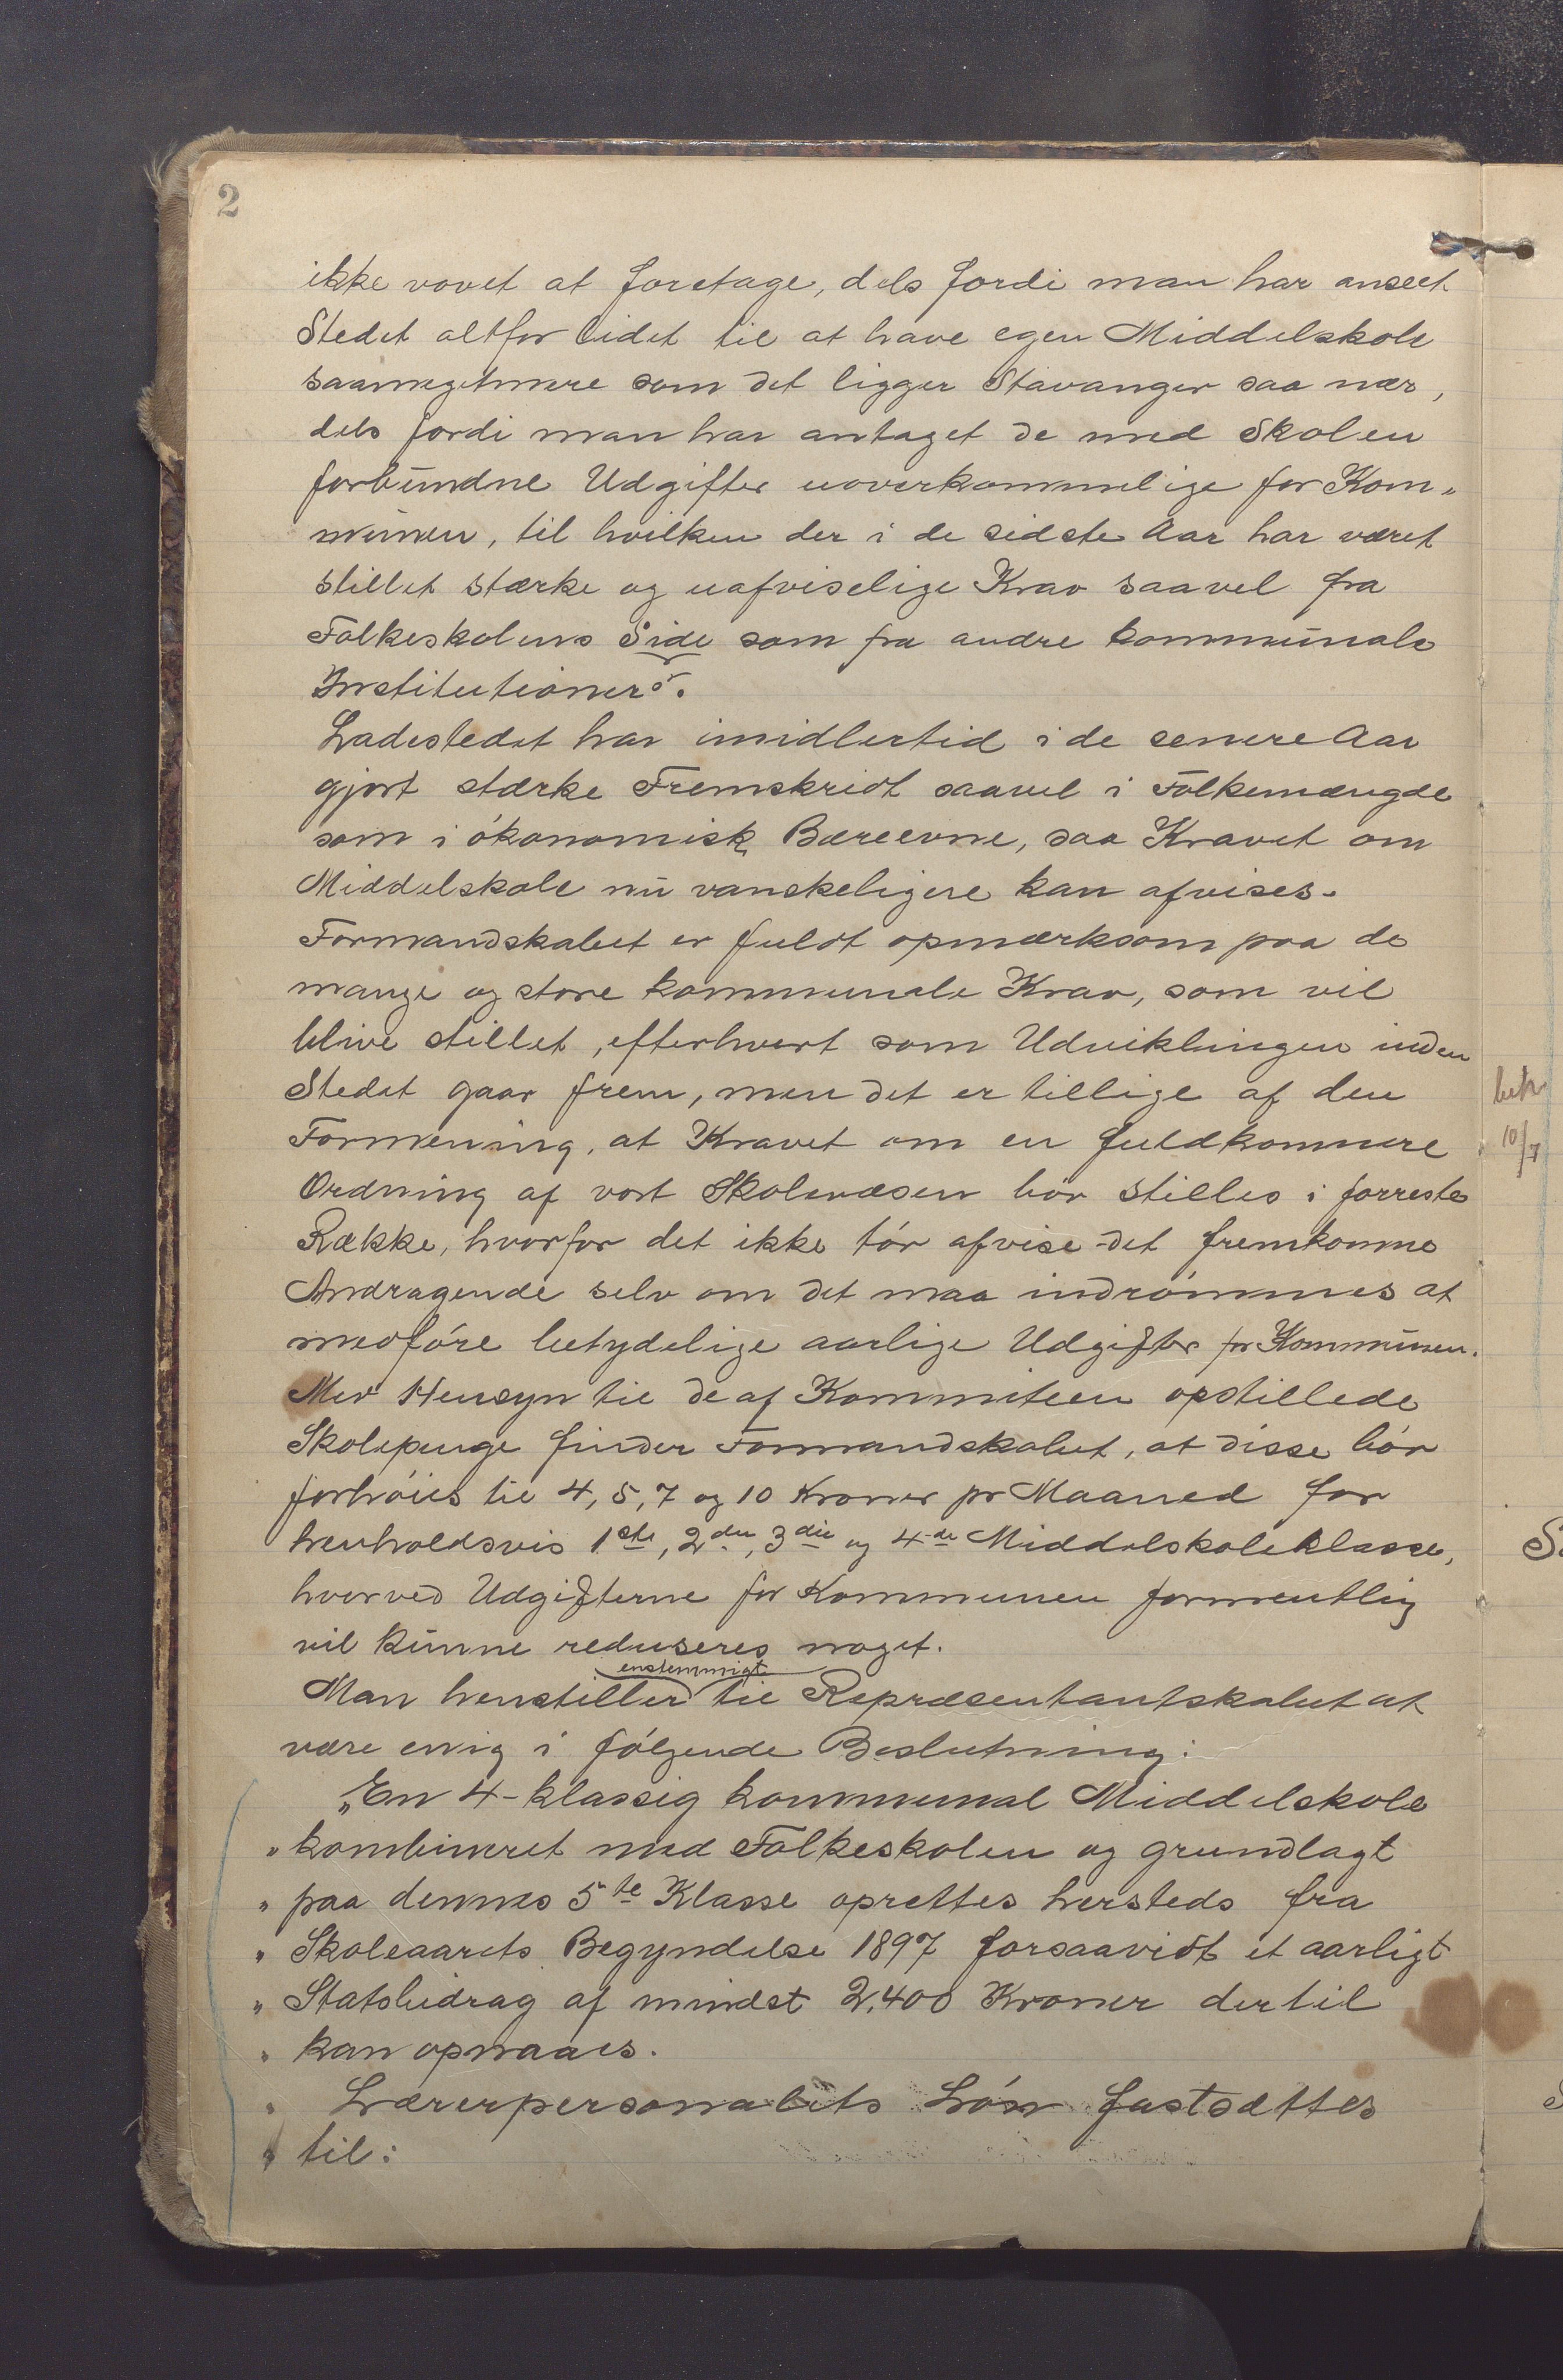 2
ikke vovet at foretage, dels fordi man har anseet
Stedet altfor lidet til at have egen Middelskole
saameget mere som det ligger Stavanger saa nær,
dels fordi man har antaget de med Skolen
forbundne Udgifter uoverkommelige for Kom-
munen, til hvilken der i de sidste Aar har været
stillet stærke og uafviselige Krav saavel fra
Folkeskolens Side som fra andre kommunale
Institutioner.
Ladestedet har imidlertid i de senere Aar
gjort stærke Fremskridt saavel i Folkemængde
som i økonomisk Bæreevne, saa Kravet om
Middelskole nu vanskeligere kan afvises.
Formandskabet er fuldt opmærksom paa de
mange og store kommunale Krav, som vil
blive stillet, efterhvert som Udviklingen inden
Stedet gaar frem, men det er tillige af den
Formening, at Kravet om en fuldkomnere
Ordning af vort Skolevæsen bør stilles i forreste
Række, hvorfor det ikke tør afvise det fremkomne
Andragende selv om det maa indrømmes at
medføre betydelige aarlige Udgifter for Kommunen.
Med Hensyn til de af Kommiteen opstillede
Skolepenge finder Formandskabet, at disse bør
forhøies til 4, 5, 7 og 10 Kroner pr Maaned for
henholdsvis 1ste, 2den, 3die og 4de Middelskoleklasse,
hvorved Udgifterne for Kommunen formentlig
vil kunne reduseres noget.
enstemmigt
Man henstiller til Repræsentantskabet at
være enig i følgende Beslutning:
"En 4-klassig kommunal Middelskole
" kombineret med Folkeskolen og grundlagt
" paa dennes 5te Klasse oprettes hersteds fra
" Skoleaarets Begyndelse 1897 forsaavidt et aarligt
" Statsbidrag af mindst 2,400 Kroner dertil
" kan opnaaes.
" Lærerpersonalets Løn fastsættes
" til: